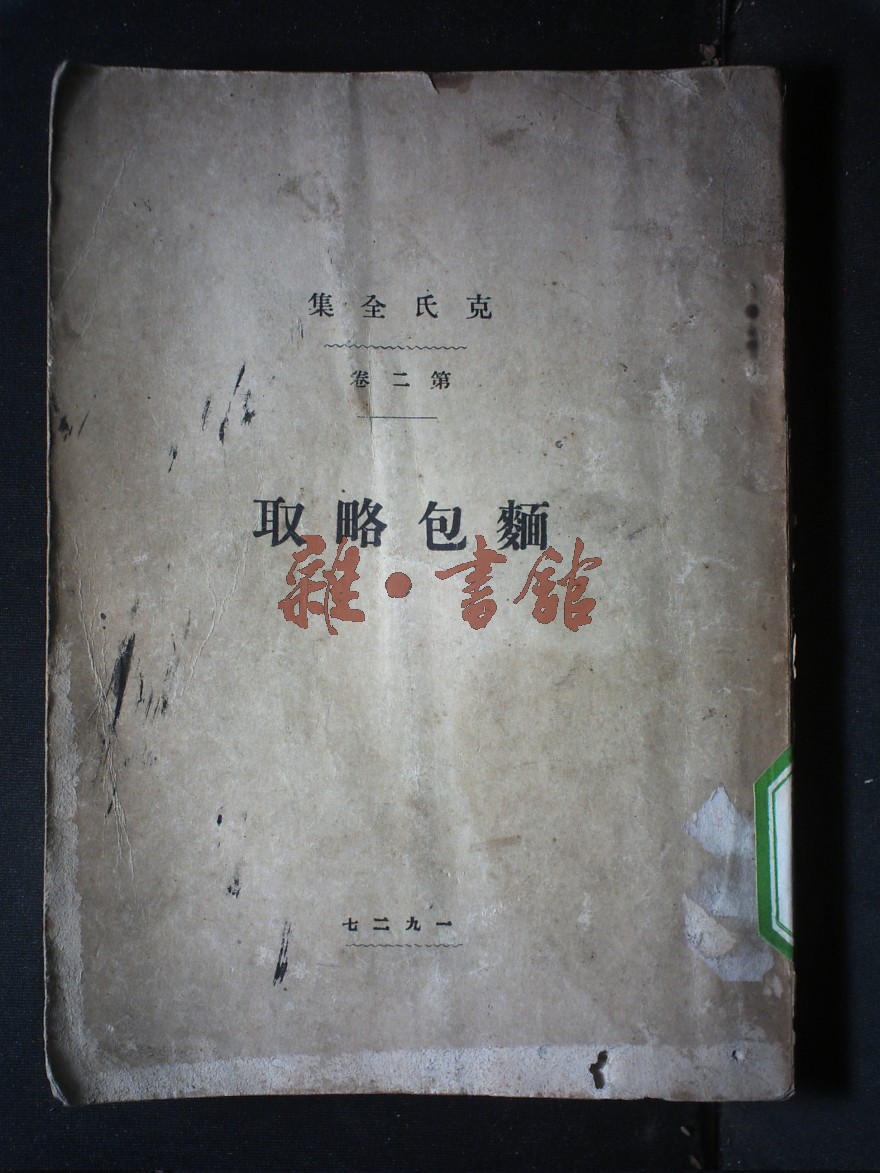 克氏全集
第二卷
麵包略取
雜·書館
一九二七